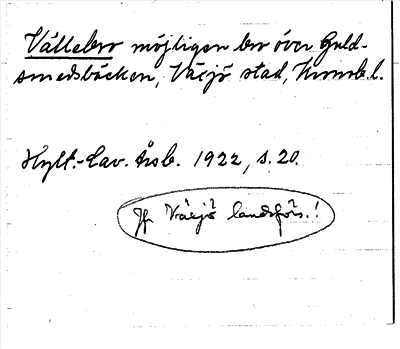 Vällebro möjligen bro över Guld-
smedsbäcken, Växjö stad, Kronob. l.
Hylt.-Cav. Årsb. 1922, s. 20.
Jfr Växjö landsförs.!